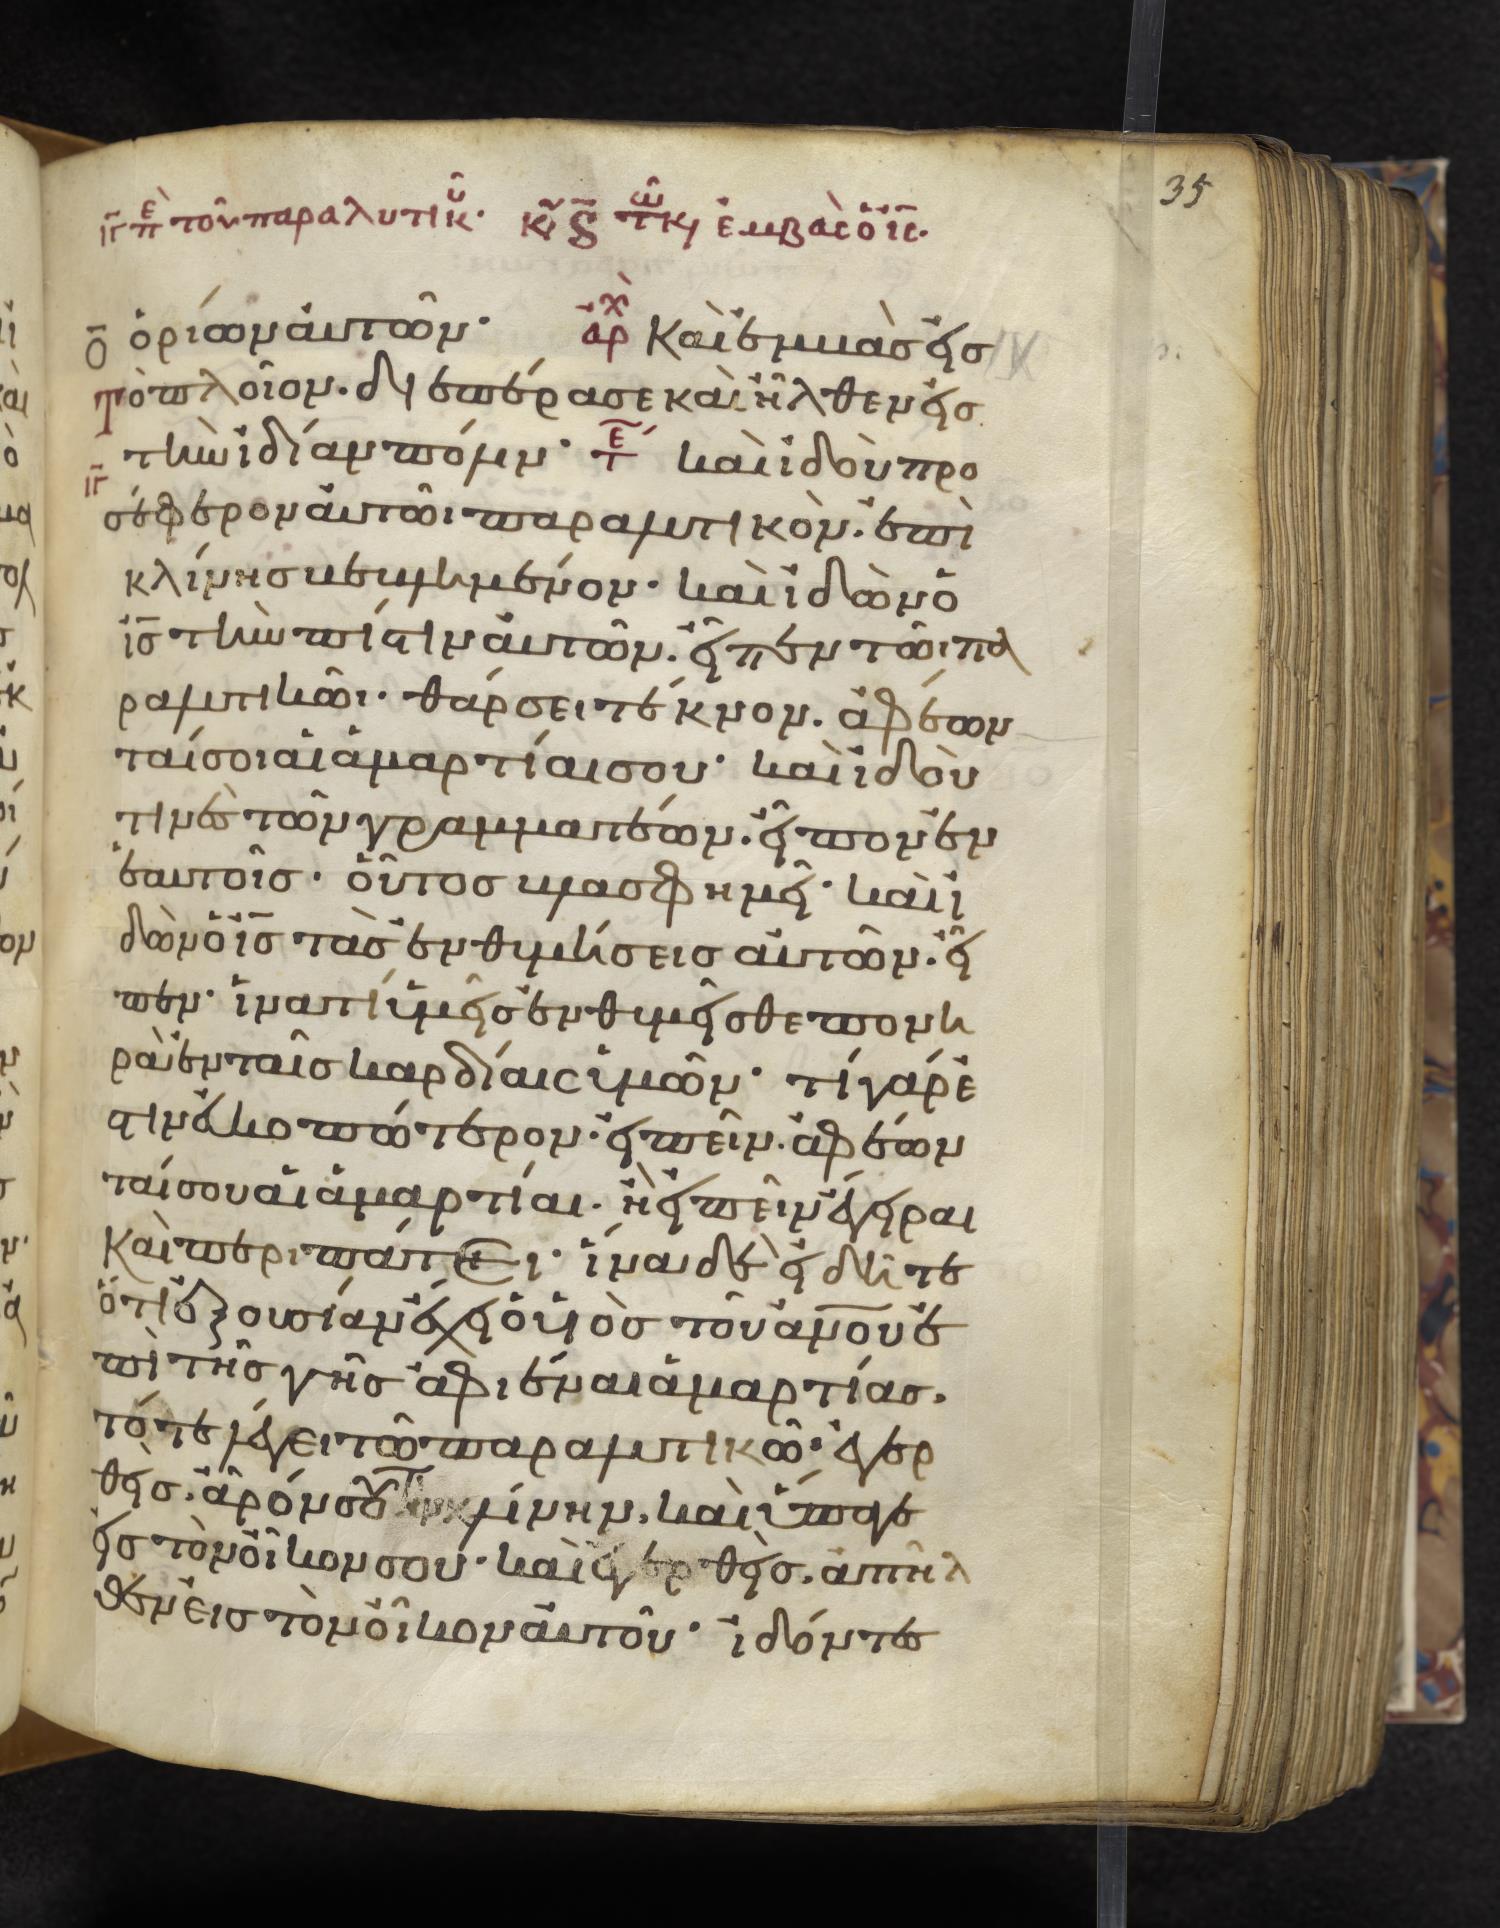 35
ιγ πε τοῦ παραλυτικ. κυ ϛ τω κ, ἐμβὰς ὁ ις.
ὁρίων αὐτῶν· αρχ Καὶ ἐμβὰς εἰς
τὸ πλοῖον. διεπέρασε καὶ ἦλθεν εἰς
τὴν ἰδίαν πόλιν· τε καὶ ἰδοὺ προ
σέφερον αὐτῶι παραλυτικὸν. ἐπὶ
κλίνησ βεβλημένον. καὶ ἰδὼν ὁ
ισ τὴν πίστιν αὐτῶν. εἶπεν τῶι πα
ραλυτικῶι. θάρσει τέκνον. ἀφέων
ταί σοι αἱ ἁμαρτίαι σου· καὶ ἰδού
τινὲσ τῶν γραμματέων. εἶπον ἐν
ἑαυτοῖσ. οὗτοσ βλασφημεῖ. καὶ ἰ
δὼν ὁ ισ τὰσ ἐνθυμήσεισ αὐτῶν. εἶ
πεν. ἵνα τί ὑμεῖσ ἐνθυμεῖσθε πονη
ρὰ ἐν ταῖσ καρδίαις ὑμῶν· τί γάρ ἐ
στιν εὐκοπώτερον. εἰπεῖν. ἀφέων
ταί σου αἱ ἁμαρτίαι. ἢ εἰπεῖν ἔγειραι
Καὶ περιπάτει. ἵνα δὲ εἰδῆτε
ὅτι ἐξουσίαν ἔχει ὁ υἱὸσ τοῦ ανου ἐ
πὶ τῆσ γῆσ ἀφιέναι ἁμαρτίας.
τότε λέγει τῶ παραλυτικῶ. ἐγερ
θεὶσ. ἆρόν σου τὴν κλίνην. καὶ ὕπαγε
εἰσ τὸν οἶκον σου. καὶ ἐγερθεὶσ. ἀπῆλ
θεν εἰσ τὸν οἶκον αὐτοῦ· ἰδόντεσ